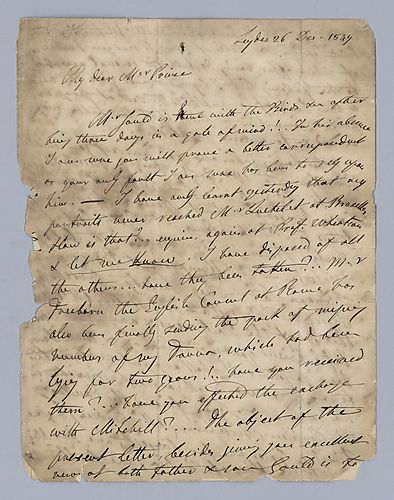 Leyden 26 Dec. 1847
My dear Mr Prince
Mr Gould is gone with the Birds on after
being three days in a gale of wind!! In his absence
I am sure you will prove a better correspondent
or your only fault
him. — I have only learnt yesterday that my
portraits never reached Mr at Bruxelles
How is that?... enquire again at Prof. Wheatstone
& let me know. I have disposed of all
the others... have they been taken?... Mr
Freeborn the English Consul at Rome has
also been finally sending the pack of missing
numbers of my Fauna, which had been
lying for two years!! have you received
them?... have you effected the exchange
with Mitchell?.... The object of the
present letter, besides giving you excellent
news of both father & son Gould is to